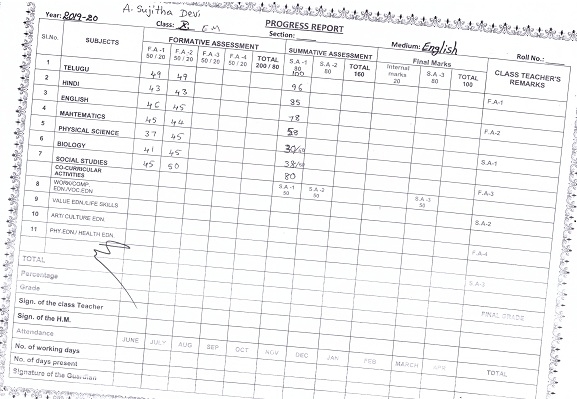 A. Sujitha Devi
Year: 2019-20
Class: X EM
PROGRESS REPORT
Section:
Medium: English
Roll No.:
Sl.No. SUBJECTS FORMATIVE ASSESSMENT SUMMATIVE ASSESSMENT Final Marks CLASS TEACHER'S REMARKS
F.A -1 50 / 20 F.A -2 50 / 20 F.A -3 50 / 20 F.A -4 50 / 20 TOTAL 200 / 80 S.A -1 80 S.A -2 80 TOTAL 160 Internal marks 20 S.A -3 80 TOTAL 100
100
1 TELUGU 49 49 96 F.A-1
2 HINDI 43 43 85
3 ENGLISH 46 45 78 F.A-2
4 MAHTEMATICS 45 44
5 PHYSICAL SCIENCE 37 45 S.A-1
6 BIOLOGY 41 45
7 SOCIAL STUDIES 45 50 80
CO-CURRICULAR ACTIVITIES S.A -1 50 S.A -2 50 S.A -3 50 F.A-3
8 WORK/COMP. EDN./VOC.EDN
9 VALUE EDN./LIFE SKILLS S.A-2
10 ART/ CULTURE EDN.
11 PHY.EDN./ HEALTH EDN. F.A-4
TOTAL
Percentage S.A-3
Grade
Sign. of the class Teacher FINAL GRADE
Sign. of the H.M.
Attendance JUNE JULY AUG SEP OCT NOV DEC JAN FEB MARCH APR TOTAL
No. of working days
No. of days present
Signature of the Guardian